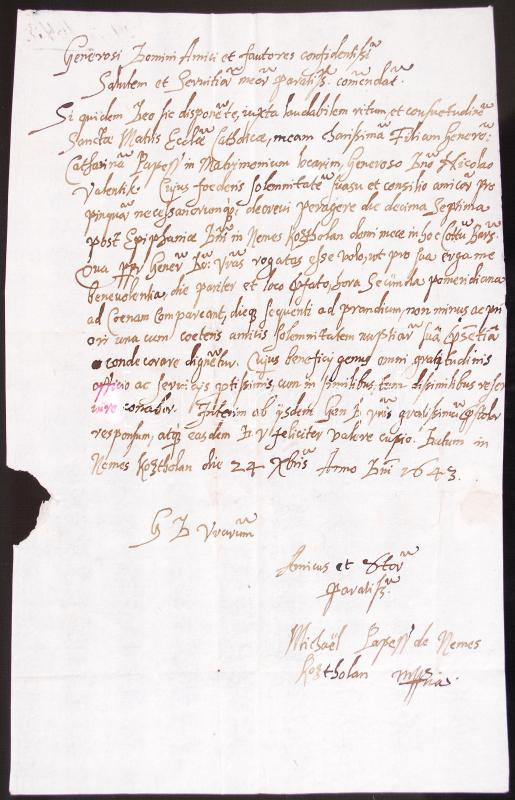 Generosi Domini Amici et fautores confidentissi
Salutem et Servitior mear paratiss. comendat.
Siquidem Deo sic disponete, iuxta laudabilem ritum, et consuetudine
Sanctae Matris Ecclae Catholicae, meam charissima Filiam Generos:
Catharina Papessi in Matrimonium locarim, Generoso Dno Nicolao
Valentik. Cujus foederis solemnitate suasu et consilio amicor Pro
pinquor necessariorumq; decrevi peragere die decima Septima
post Epiphaniae Dni in Nemes Koztholan domi meae in hoc Cottu Bars.
Qua ppr Gener D: Vras rogatas esse volo, ut pro sua erga me
benevolentia, die pariter et loco pfato, hora Secunda pomeridiana
ad Coenam Compareant, dieq sequenti ad prandium, non minus ac pri
ori una cum coeteris amicis solemnitatem nuptiar sua psentia
condecorare dignetur. Cujus beneficij genus omni gratitudinis
officio ac servicijs potissimis, cum in similibus, tum dissimilibus reser
vire conabor. Interim ob ijsdem Gen D Vris gratissimu pstolor
responsum, atq easdem D V feliciter valere cupio. Datum in
Nemes Koztholan die 24 Xbris Anno Dni 1643.
G D Vrarum
Amicus et Stor
paratiss.
Michaël Papessi de Nemes
Koztholan mppria.